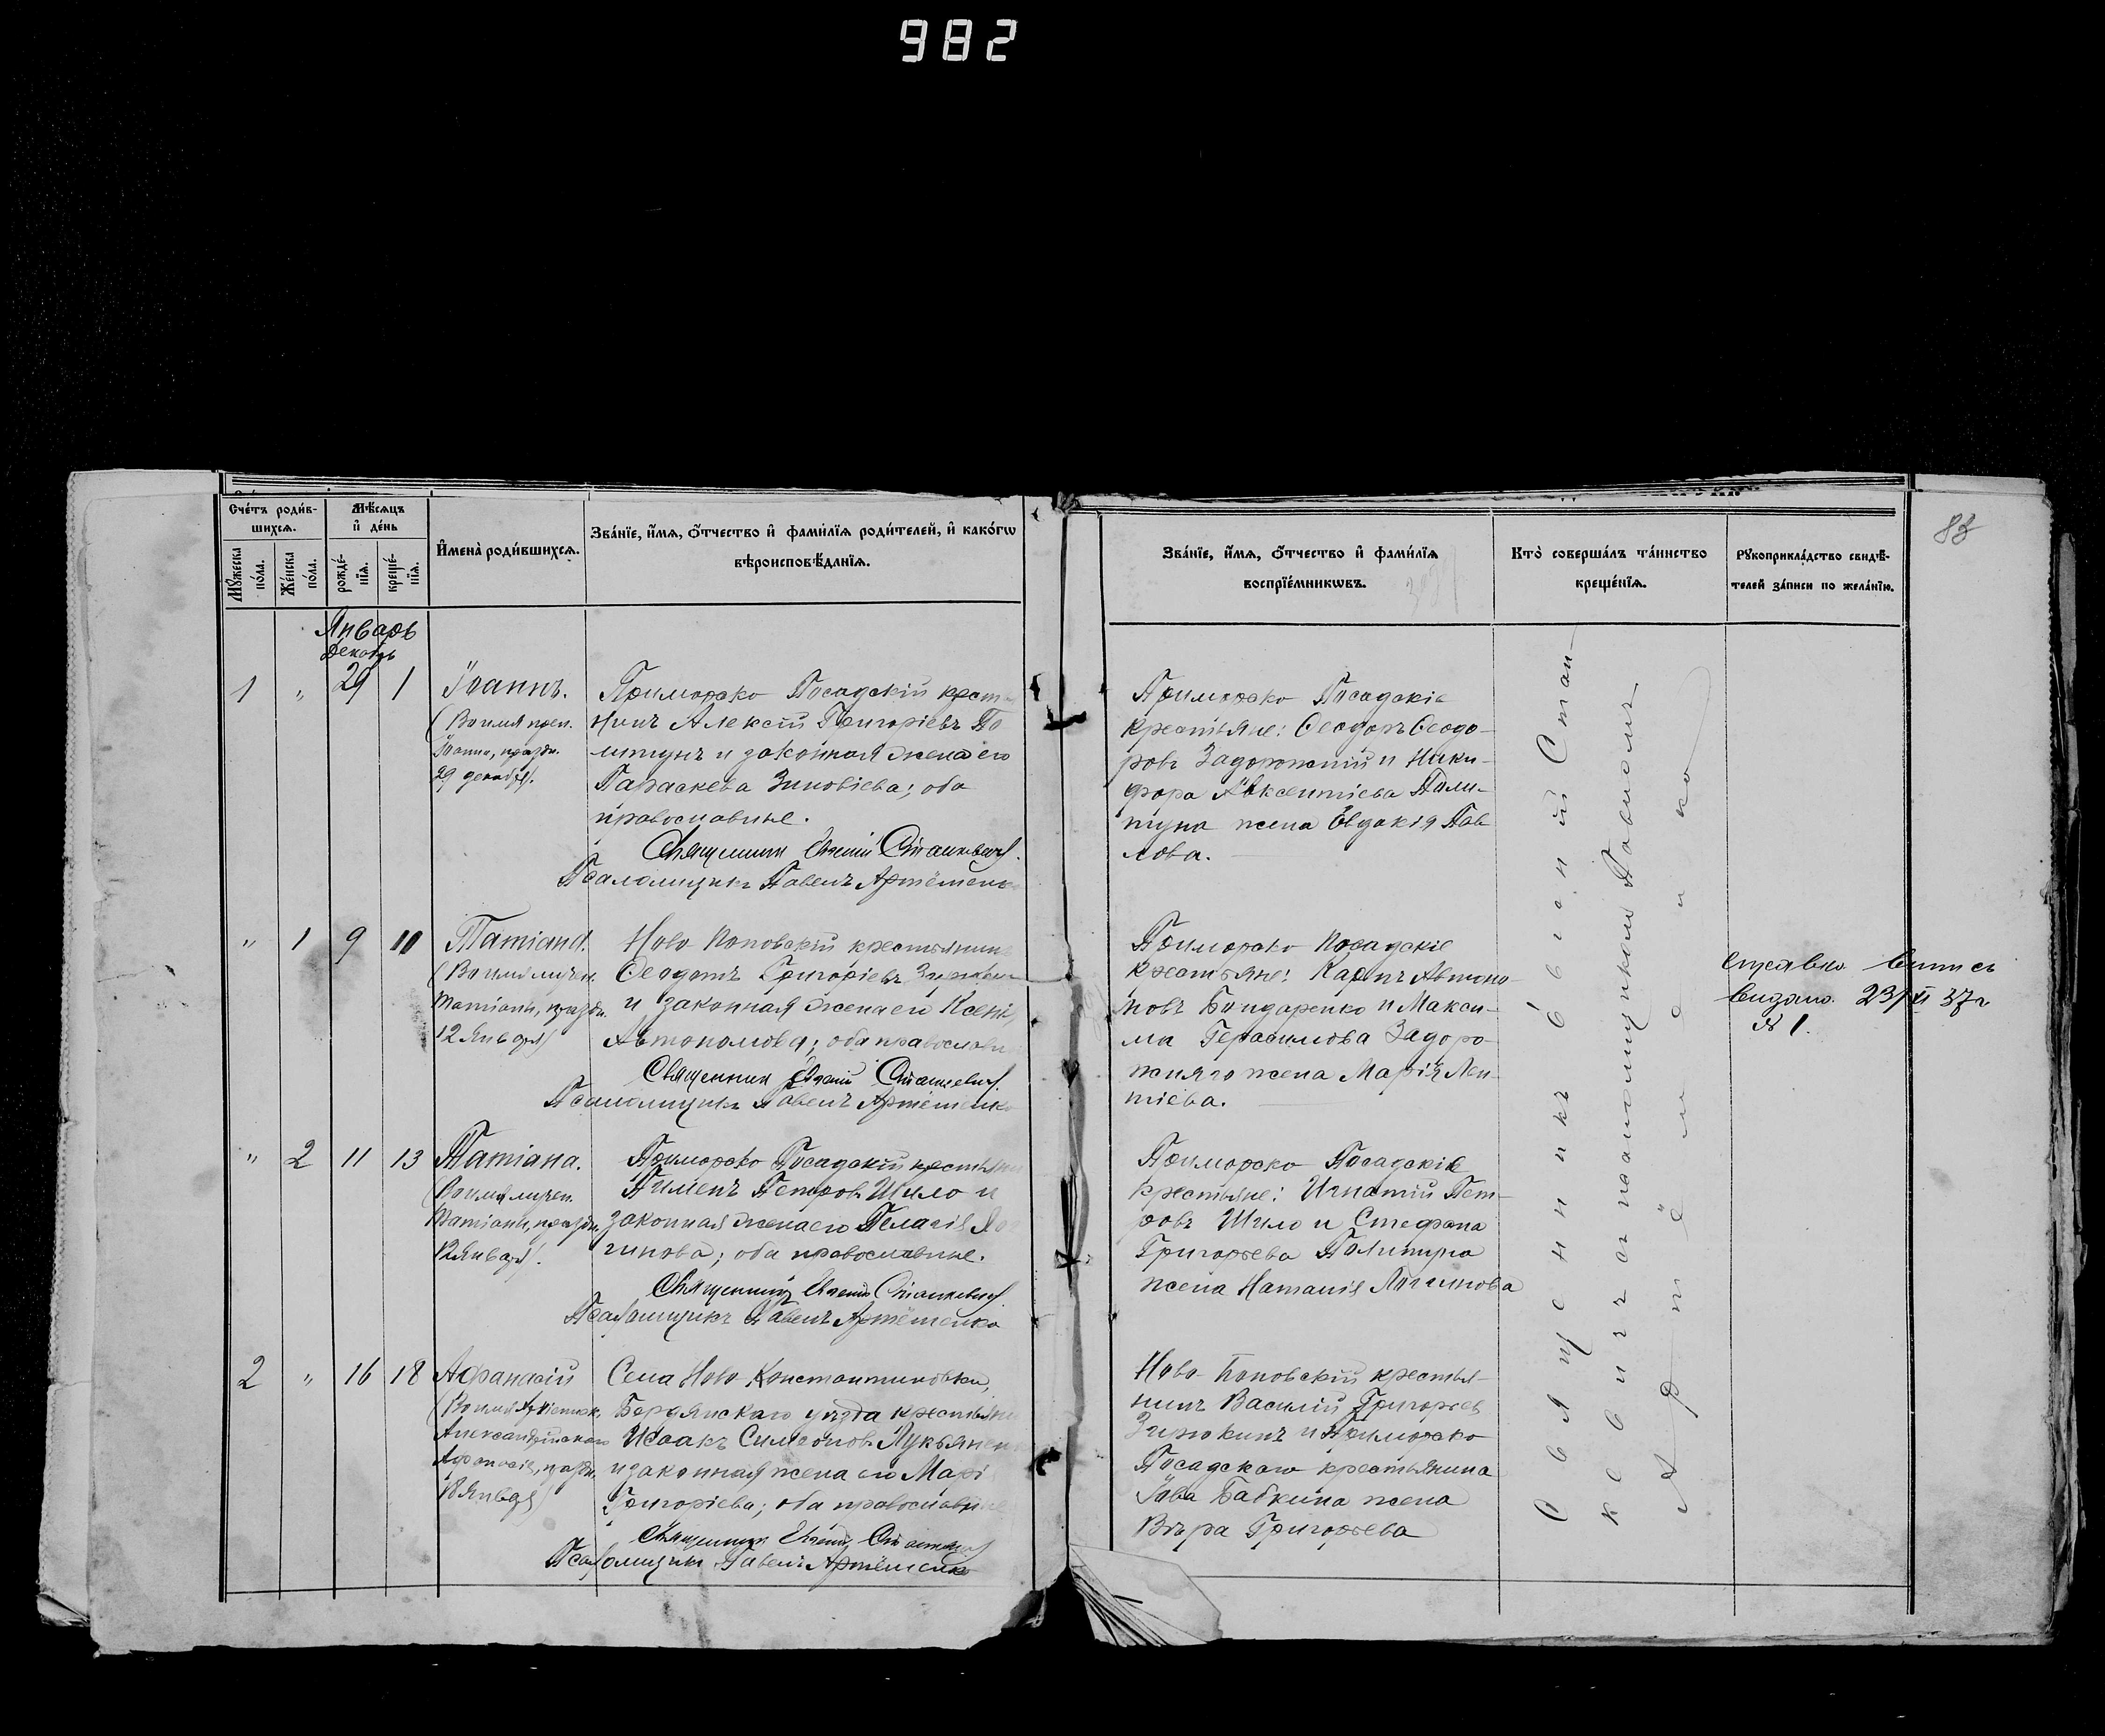 982
83
Счетъ родив-
шихся.
Мѣсяцъ
и день
Мужеска
пола.
Женска
пола.
рожде-
нія.
креще-
нія.
Имена родившихся.
Званіе, имя, отчество и фамилія родителей, и какогѡ
вѣроисповѣданія.
Званіе, имя, отчество и фамилія
воспріемникѡвъ.
Кто совершалъ таинство
крещенія.
Рукоприкладство свидѣ-
телей записи по желанію.
Январь
Декабрь
1 " 29 1
Іоаннъ.
(Во имя преп.
Іоанна, праздн.
29 декабря).
Приморско Посадскій крест
нинъ Алексѣй Григоріевъ По
литунъ и законная жена его
Параскева Зиновіева; оба
православные.
Священникъ Евгеній Станкевичъ.
Псаломщикъ Павелъ Артёменко
Приморско Посадскіе
крестьяне: Ѳеодоръ Ѳеодо-
ровъ Задорожній и Ники-
фора Авксентіева Поли-
туна жена Евдокія Пав
лова.
" 1 9 10
Татіана.
(Во имя мучен.
Татіаны, праздн.
12 Января)
Ново Поповскій крестьянинъ
Ѳеодотъ Григоріевъ
и законная жена его Ксенія
Автономова; оба православн
Священникъ Евгеній Станкевичъ.
Псаломщикъ Павелъ Артёменко
Приморско Посадскіе
крестьяне: Карпъ Автоно-
мовъ Бондаренко и Макси-
ма Герасимова Задоро-
жняго жена Марія Лен-
тіева.
справка выпись
видано 23/XI 37 г
№ 1.
" 2 11 13
Татіана.
(Во имя мучен.
Татіаны, праздн.
12 Января).
Приморско Посадскій крестьянин
Пименъ Петровъ Шило и
законная жена его Пелагія Ло
гинова; оба православные.
Священникъ Евгеній Станкевичъ
Псаломщикъ Павелъ Артёменко
Приморско Посадскіе
крестьяне: Игнатій Пет-
ровъ Шило и Стефана
Григорьева Политуна
жена Наталія Логинова
2 " 16 18
Аѳанасій
(Во имя Архіеписк.
Александрійскаго
Аѳанасія, праздн.
18 Января)
Села Ново Константиновки,
Бердянскаго уѣзда крестьянин
Исаакъ Симеоновъ Лукьянен
и законная жена его Марі
Григоріева; оба православные
Священникъ Евгеній Станкевичъ
Псаломщикъ Павелъ Артёменко
Ново-Поповскій крестья-
нинъ Василій Григорьев
Зирюкинъ и Приморско
Посадскаго крестьянина
Іова Бабкина жена
Вѣра Григорьева
Священникъ Евгеній Стан-
кевичъ съ псаломщикомъ Павломъ
Артёменко